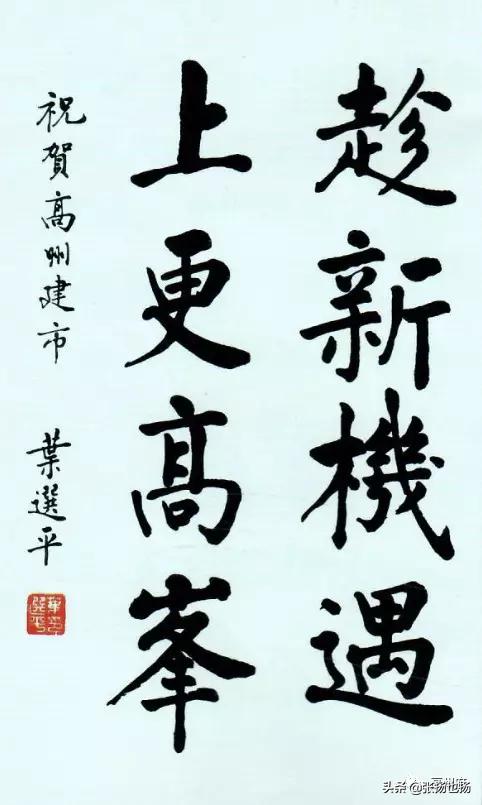 趁新機遇
上更高峯
祝賀高州建市
葉選平
头条 @张扬也扬